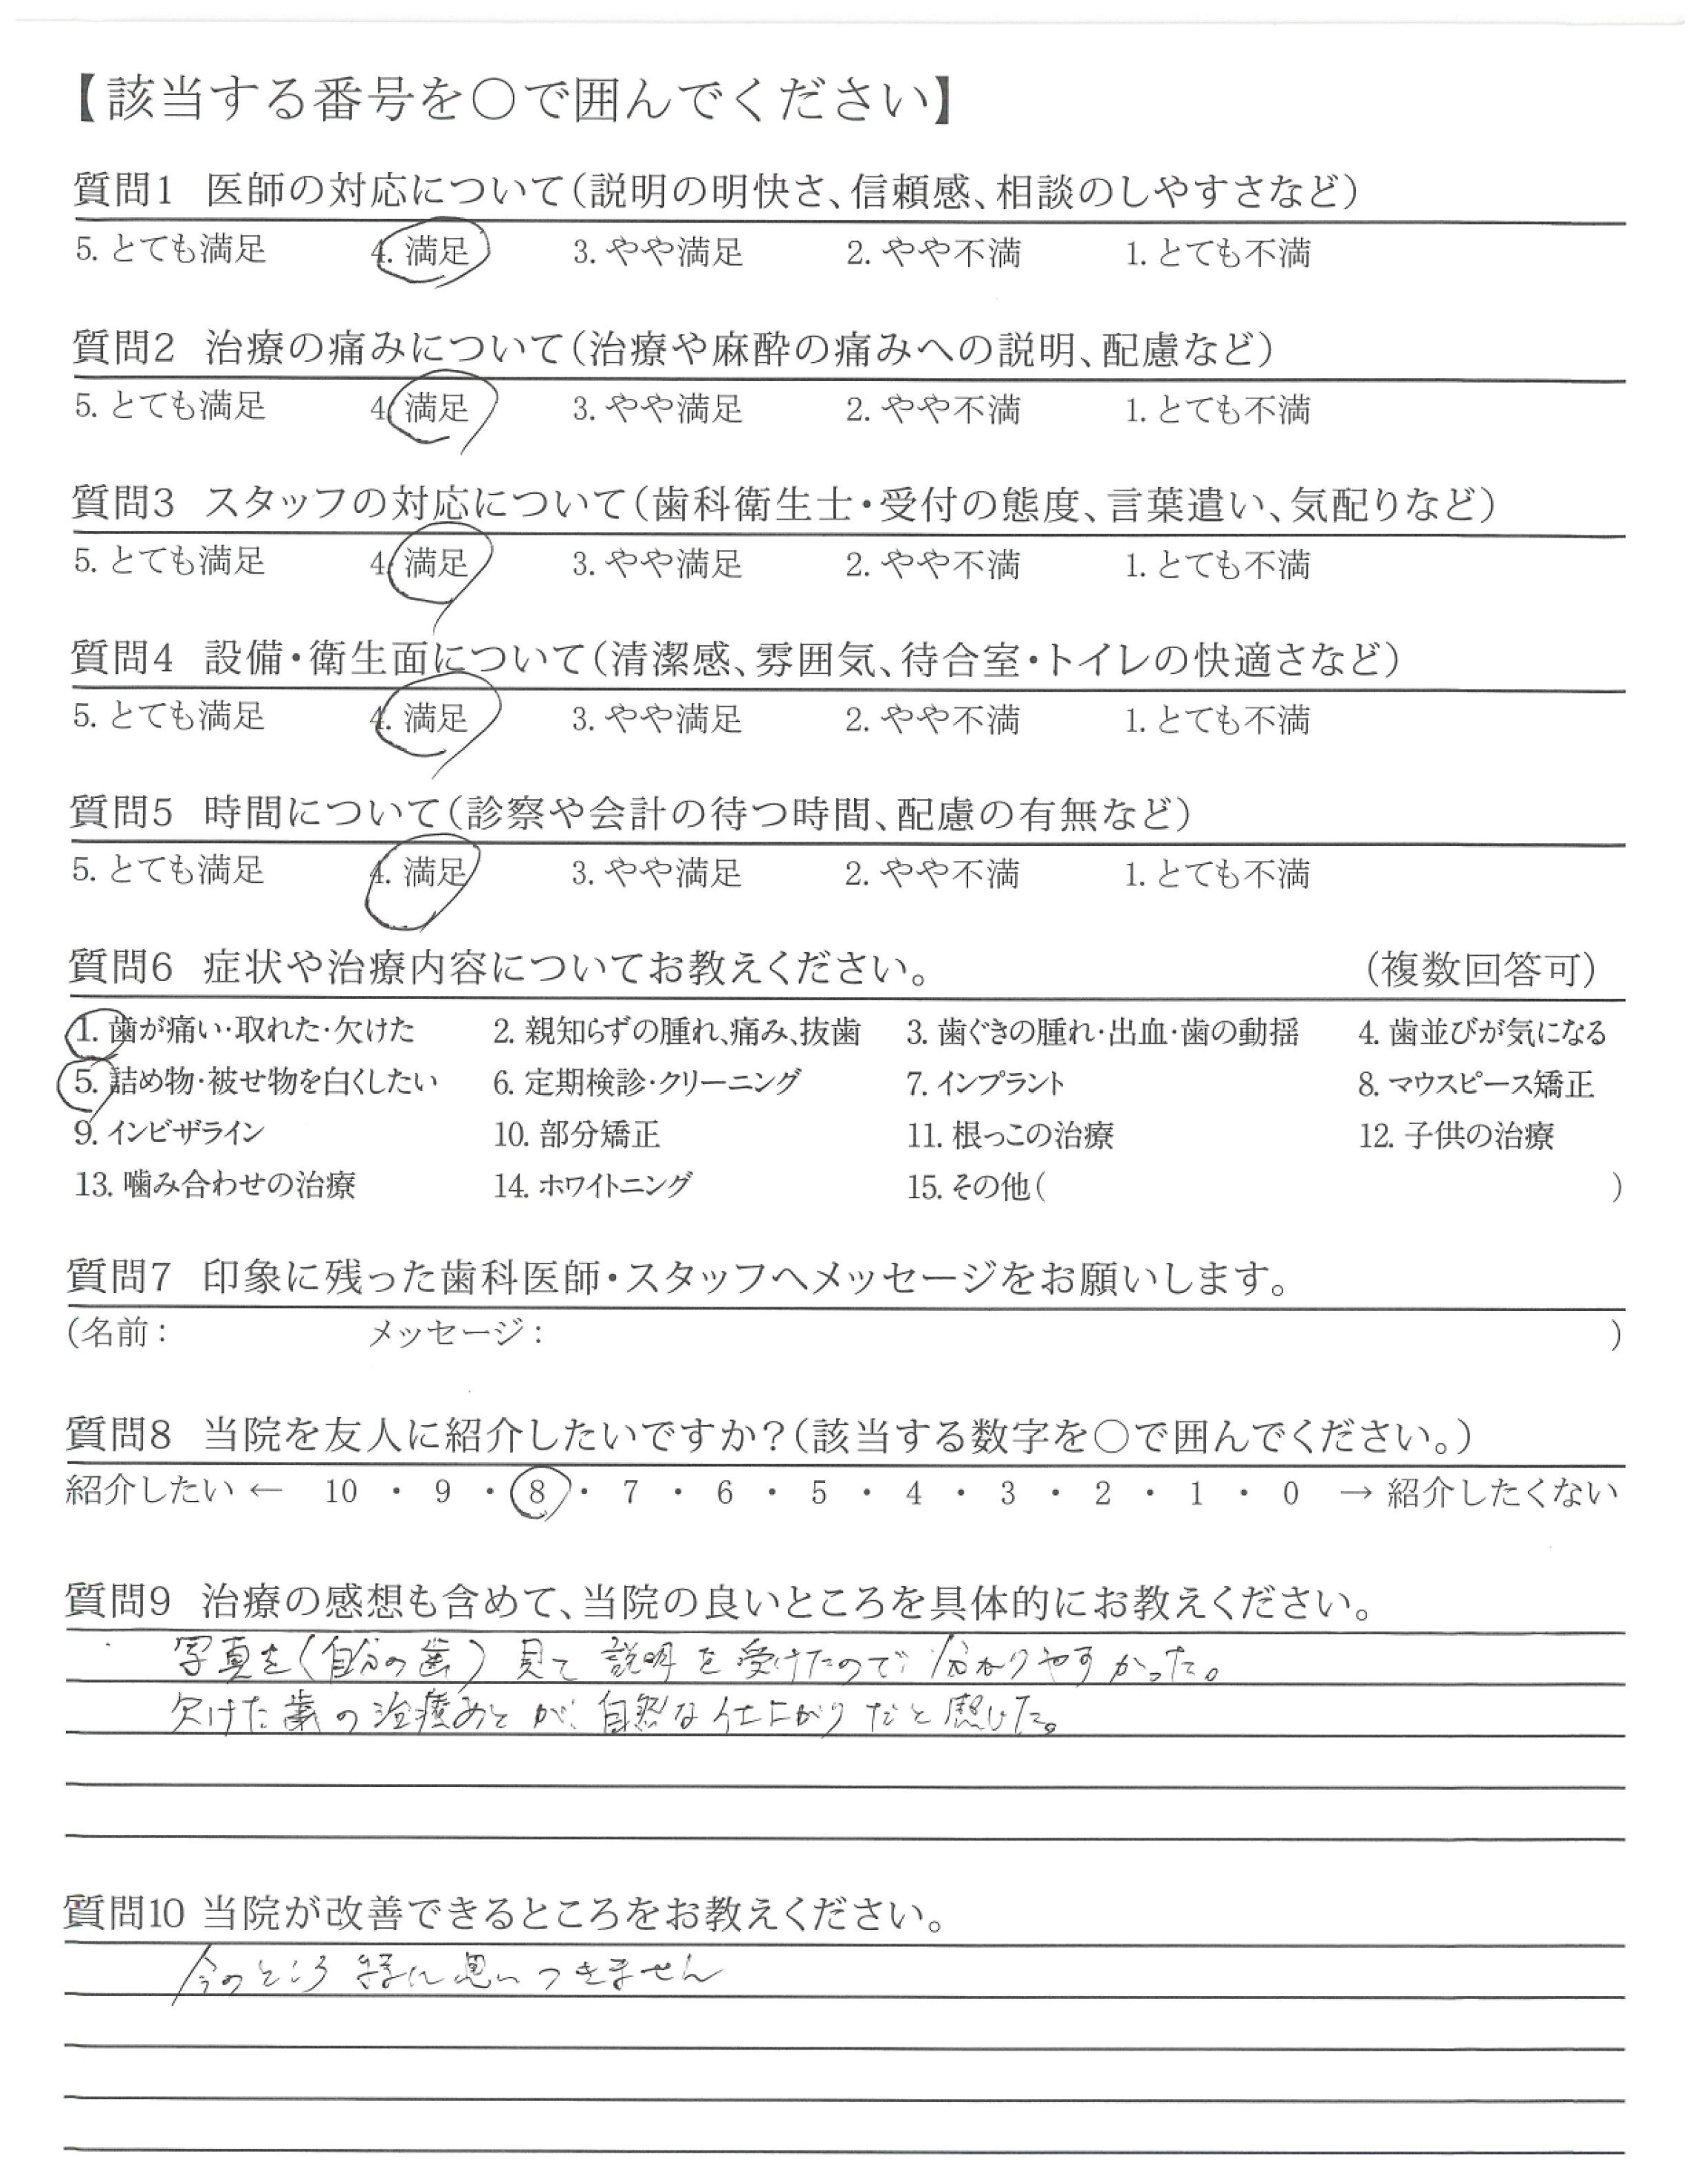 【該当する番号を○で囲んでください】
質問1 医師の対応について(説明の明快さ、信頼感、相談のしやすさなど)
5. とても満足 4. 満足 3. やや満足 2. やや不満 1. とても不満
質問2 治療の痛みについて(治療や麻酔の痛みへの説明、配慮など)
5. とても満足 4. 満足 3. やや満足 2. やや不満 1. とても不満
質問3 スタッフの対応について(歯科衛生士・受付の態度、言葉遣い、気配りなど)
5. とても満足 4. 満足 3. やや満足 2. やや不満 1. とても不満
質問4 設備・衛生面について(清潔感、雰囲気、待合室・トイレの快適さなど)
5. とても満足 4. 満足 3. やや満足 2. やや不満 1. とても不満
質問5 時間について(診察や会計の待つ時間、配慮の有無など)
5. とても満足 4. 満足 3. やや満足 2. やや不満 1. とても不満
質問6 症状や治療内容についてお教えください。 (複数回答可)
1. 歯が痛い・取れた・欠けた 2. 親知らずの腫れ、痛み、抜歯 3. 歯ぐきの腫れ・出血・歯の動揺 4. 歯並びが気になる
5. 詰め物・被せ物を白くしたい 6. 定期検診・クリーニング 7. インプラント 8. マウスピース矯正
9. インビザライン 10. 部分矯正 11. 根っこの治療 12. 子供の治療
13. 噛み合わせの治療 14. ホワイトニング 15. その他( )
質問7 印象に残った歯科医師・スタッフへメッセージをお願いします。
(名前: メッセージ: )
質問8 当院を友人に紹介したいですか?(該当する数字を○で囲んでください。)
紹介したい ← 10 ・ 9 ・ 8 ・ 7 ・ 6 ・ 5 ・ 4 ・ 3 ・ 2 ・ 1 ・ 0 → 紹介したくない
質問9 治療の感想も含めて、当院の良いところを具体的にお教えください。
写真を(自分の歯)見て説明を受けたので分かりやすかった。
欠けた歯の治療あとが、自然な仕上がりだと感じた。
質問10 当院が改善できるところをお教えください。
今のところ特に思いつきません